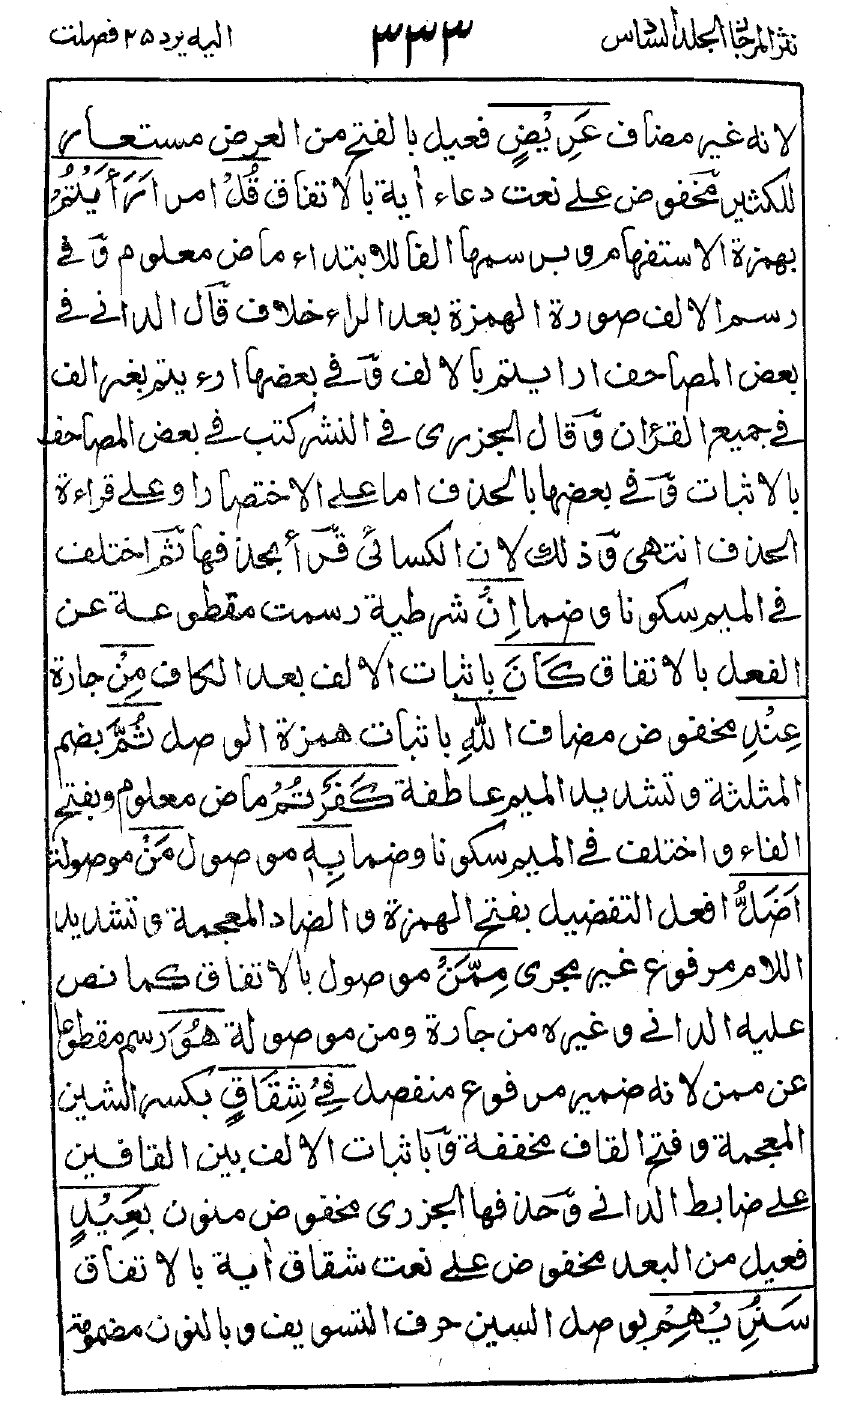 نثر المرجان الجلد السادس
٣٣٣
اليه يرد ٢٥ فصلت
لانه غير مضاف عَرِيْضٍ فعيل بالفتح من العرض مستعار
للكثير مخفوض على نعت دعاء أية بالاتفاق قُلْ امر اَرَأَيْتُمْ
بهمزة الاستفهام وبرسمها الفا للابتداء ماض معلوم وّفي
رسم الالف صورة الهمزة بعد الراء خلاف قّال الداني في
بعض المصاحف ارايتم بالالف وّفي بعضها ارءيتم بغير الف
في جميع القرّان وّقال الجزري في النشر كتب في بعض المصاحف
بالاثبات وّفي بعضها بالحذف اما على الاختصار او على قراءة
الحذف انتهى وّذلك لان الكسائي قّرأ بحذفها ثّم اختلف
في الميم سكونا و ضما اِنْ شرطية رسمت مقطوعة عن
الفعل بالاتفاق كَانَ باثبات الالف بعد الكاف مِنْ جارة
عِنْدِ مخفوض مضاف اللّٰهِ باثبات همزة الوصل ثُمَّ بضم
المثلثة و تشديد الميم عاطفة كَفَرْتُمْ ماض معلوم وبفتح
الفاء و اختلف في الميم سكونا وضما بِهٖ موصول مَنْ موصولة
اَضَلُّ افعل التفضيل بفتح الهمزة و الضاد المعجمة و تشديد
اللام مرفوع غير مجرى مِمَّنْ موصول بالاتفاق كما نص
عليه الداني و غيره من جارة ومن موصولة هُوَ رسم مقطوعا
عن ممن لانه ضمير مرفوع منفصل فِيْ شِقَاقٍ بكسر الشين
المعجمة و فتح القاف مخففة وّباثبات الالف بين القافين
على ضابط الداني وّحذفها الجزري مخفوض منون بَعِيْدٍ
فعيل من البعد مخفوض على نعت شقاق أية بالاتفاق
سَنُرِيْهِمْ بوصل السين حرف التسويف و بالنون مضمومة